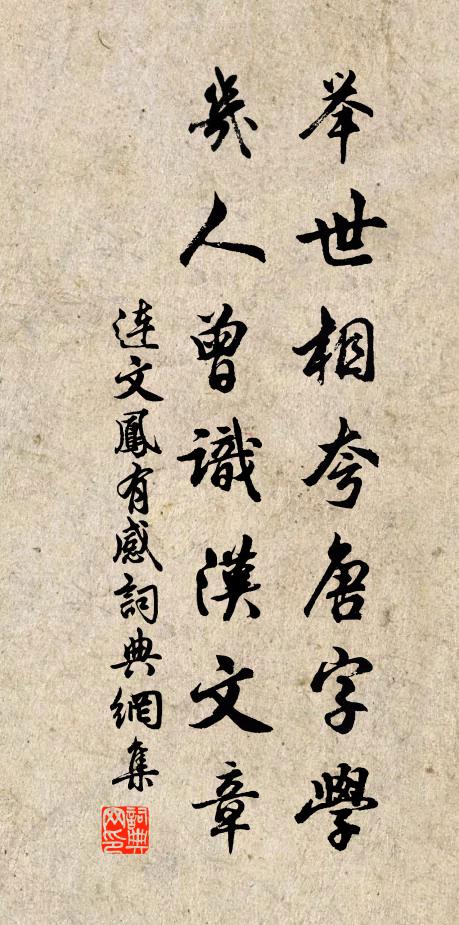 举世相夸唐字學
幾人曾識漢文章
連文鳳有感詞典網集
詞典网印